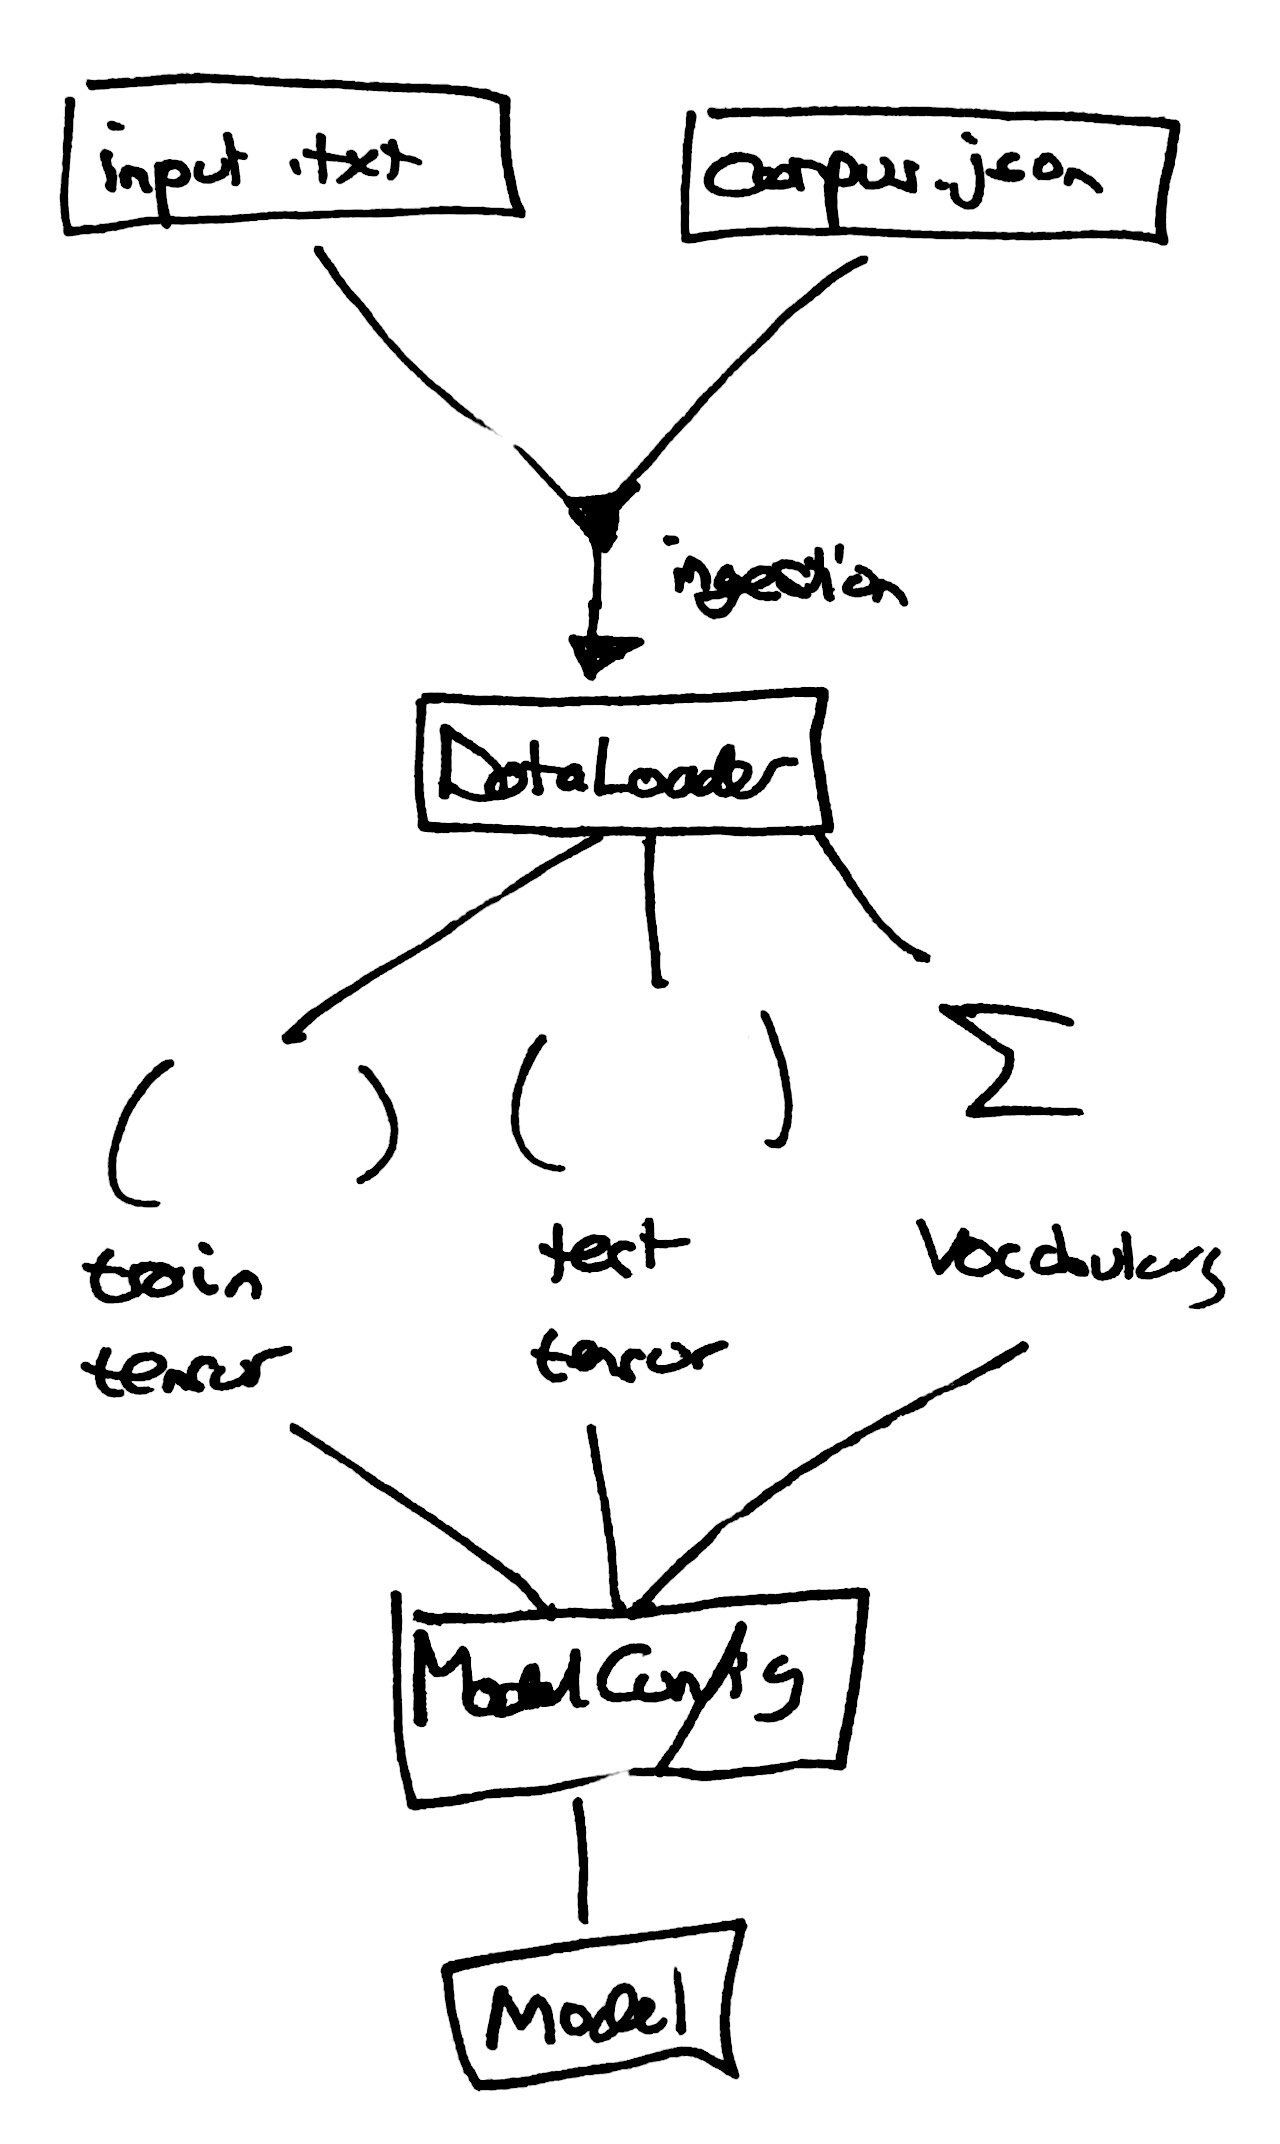 input.txt
corpus.json
ingestion
DataLoader
( ) ( ) Σ
train
tensor
test
tensor
Vocabulary
ModelConfig
Model